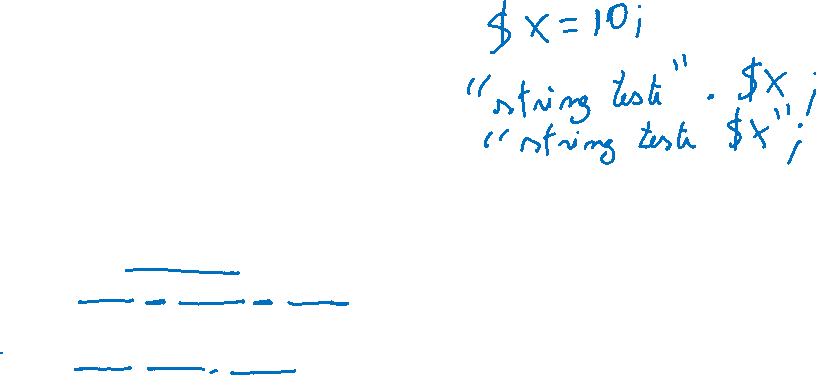 $x=10;
"string teste" . $x;
"string teste $x";